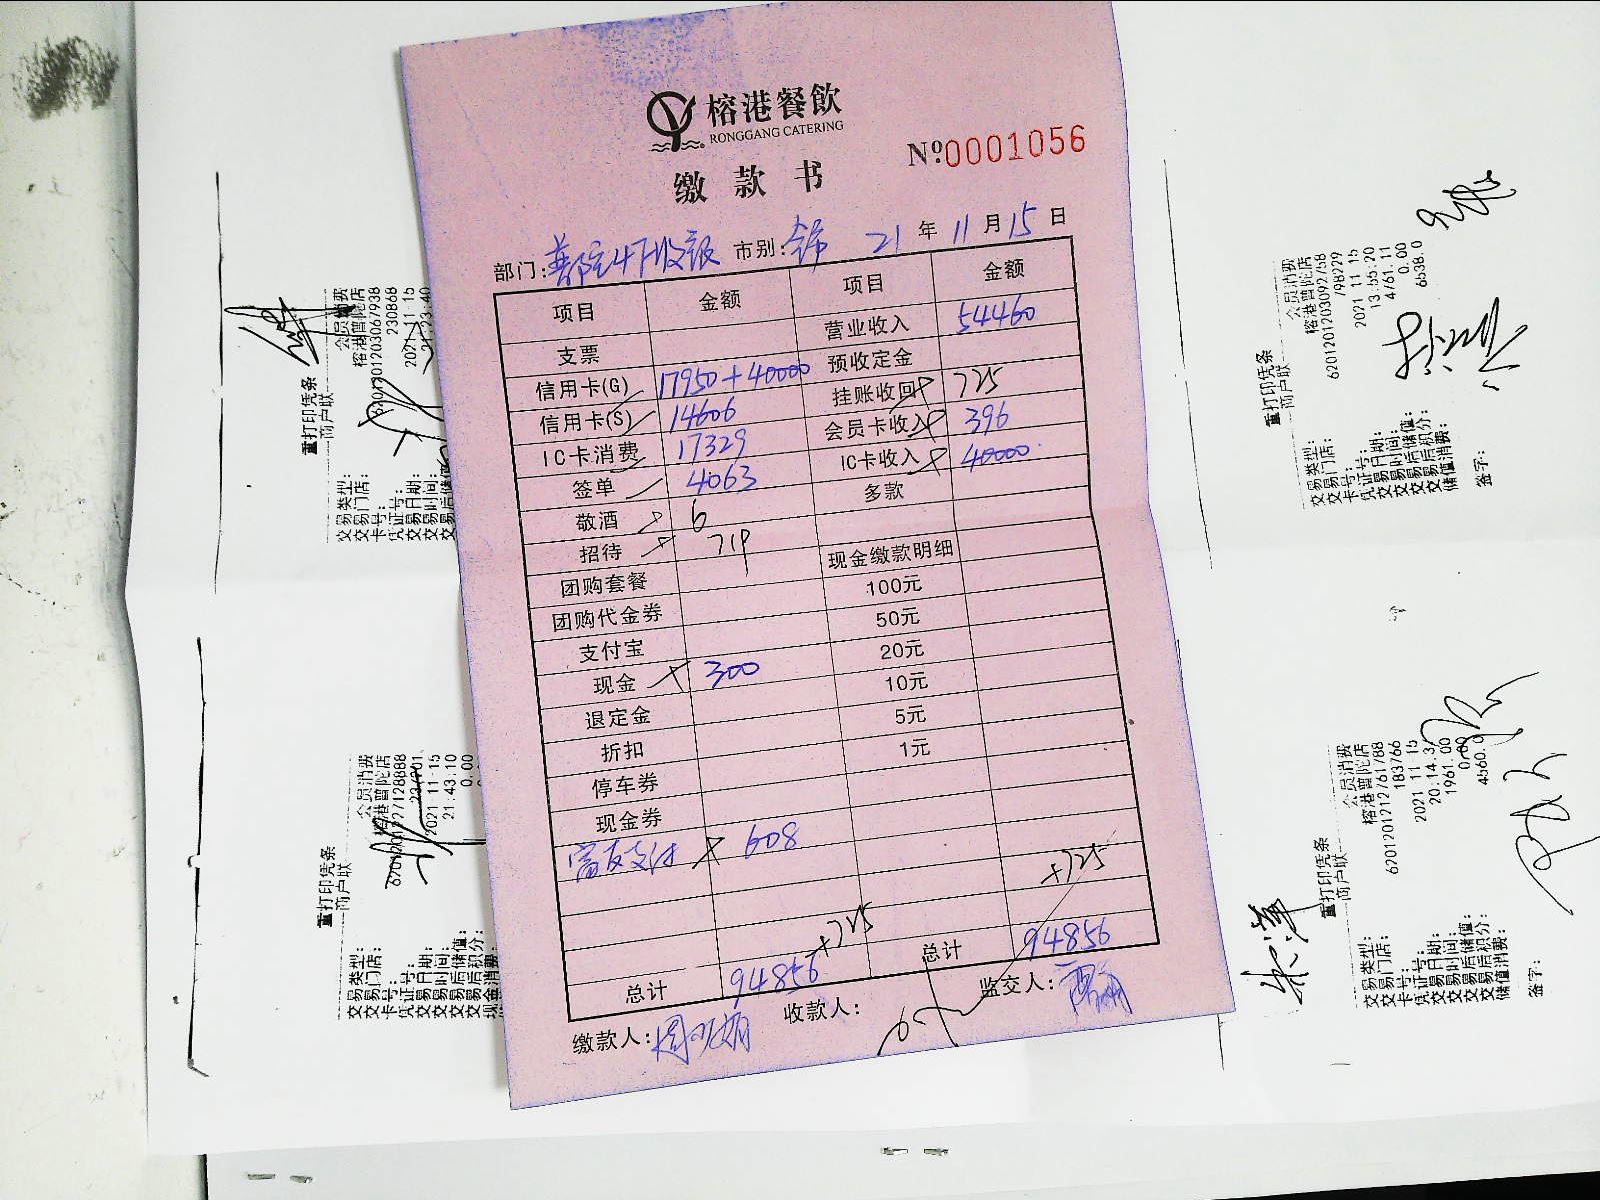 榕港餐飲
RONGGANG CATERING
缴款书
Nº0001056
部门: 市别: 21 年 11 月 15 日
项目 金额 项目 金额
营业收入 54460
支票 预收定金
信用卡(G) 17950+40000 挂账收回 725
信用卡(S) 14606 会员卡收入 396
IC卡消费 17329 IC卡收入 40000
签单 4063 多款
敬酒 6
招待 719 现金缴款明细
团购套餐 100元
团购代金券 50元
支付宝 20元
现金 300 10元
退定金 5元
折扣 1元
停车券
现金券
富友支付 608
+725
+725
总计 94856 总计 94856
缴款人: 收款人: 监交人:
重打印凭条
商户联
交易类型: 会员消费
交易门店: 榕港普陀店
卡号: 6201201203067938
凭证号: 230868
交易日期: 2021-11-15
交易时间: 21:23:40
交易后储值
重打印凭条
商户联
交易类型: 会员消费
交易门店: 榕港普陀店
卡号:
凭证号:
交易日期: 2021-11-15
交易时间: 21:43:10
交易后储值: 0.00
交易后积分:
现金消费:
重打印凭条
商户联
交易类型: 会员消费
交易门店: 榕港普陀店
卡号:
凭证号: 798229
交易日期: 2021-11-15
交易时间: 13:55:20
交易后储值: 4761.11
交易后积分: 0.00
储值消费: 6538.0
签字:
重打印凭条
商户联
交易类型: 会员消费
交易门店: 榕港普陀店
卡号: 6201201212761788
凭证号: 183766
交易日期: 2021-11-15
交易时间: 20:14:3
交易后储值: 1961.00
交易后积分: 0.00
储值消费: 4560.0
签字: